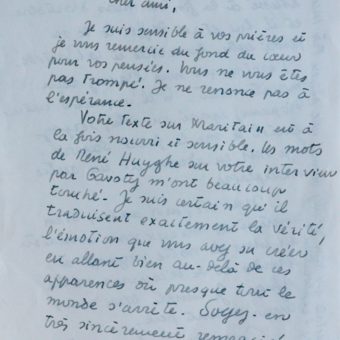 Cher ami,
Je suis sensible à vos prières et
je vous remercie du fond du cœur
pour vos pensées. Vous ne vous êtes
pas trompé. Je ne renonce pas à
l'espérance.
Votre texte sur Maritain est à
la fois nourri et sensible. Les mots
de René Huyghe sur votre interview
par Gavoty m'ont beaucoup
touché. Je suis certain qu'il
traduisent exactement la vérité,
l'émotion que vous avez su créer
en allant bien au-delà de ces
apparences où presque tout le
monde s'arrête. Soyez-en
très sincèrement remercié